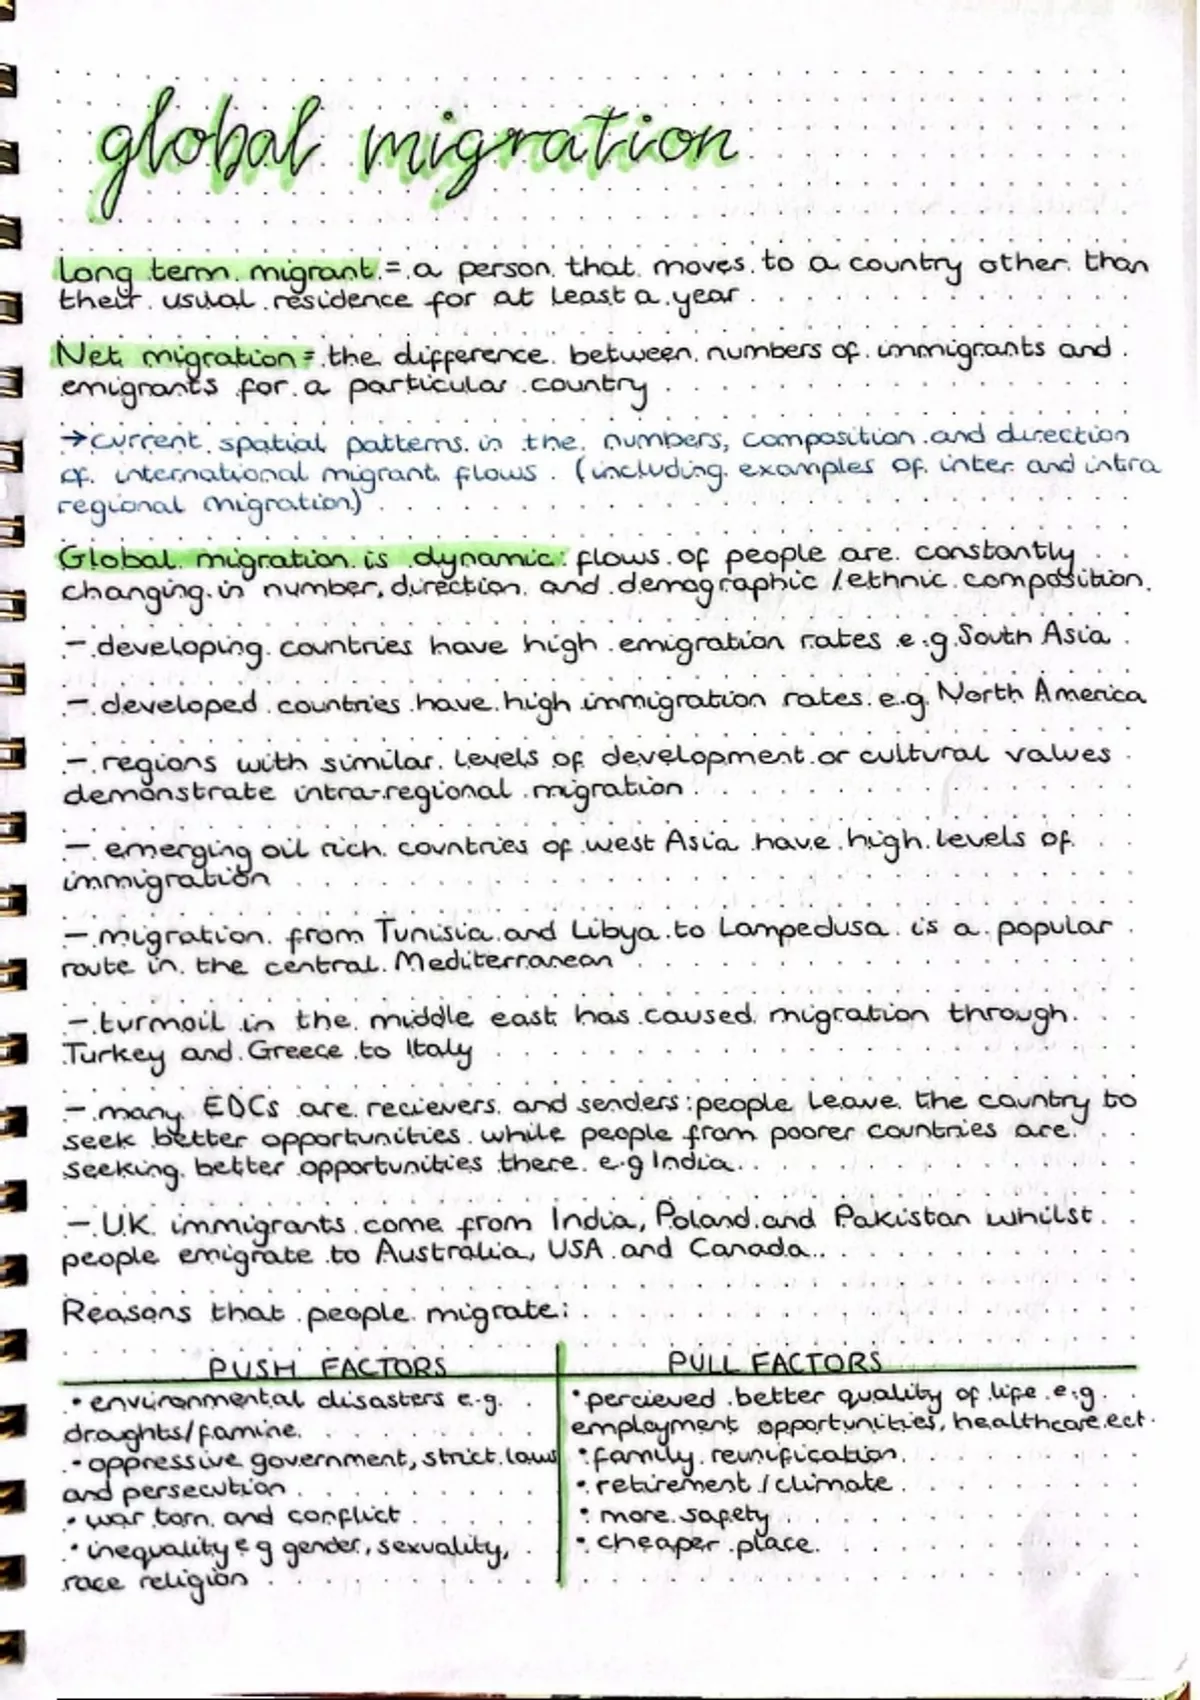 global migration
Long term migrant = a person that moves to a country other than
their usual residence for at least a year
Net migration = the difference between numbers of immigrants and
emigrants for a particular country
→ current spatial patterns in the numbers, composition and direction
of international migrant flows. (including examples of inter and intra
regional migration)
Global migration is dynamic: flows of people are constantly
changing in number, direction and demographic / ethnic composition.
- developing countries have high emigration rates e.g South Asia
- developed countries have high immigration rates e.g. North America
- regions with similar levels of development or cultural values
demonstrate intra-regional migration
- emerging oil rich countries of west Asia have high levels of
immigration
- migration from Tunisia and Libya to Lampedusa is a popular
route in the central Mediterranean
- turmoil in the middle east has caused migration through
Turkey and Greece to Italy
- many EDCs are recievers and senders: people leave the country to
seek better opportunities while people from poorer countries are
seeking better opportunities there. e.g India.
- UK immigrants come from India, Poland and Pakistan whilst
people emigrate to Australia, USA and Canada.
Reasons that people migrate:
PUSH FACTORS
• environmental disasters e.g.
droughts/famine.
• oppressive government, strict laws
and persecution
• war torn and conflict
• inequality e g gender, sexuality,
race religion
PULL FACTORS
• percieved better quality of life e.g.
employment opportunities, healthcare ect.
• family reunification
• retirement / climate
• more safety
• cheaper place.